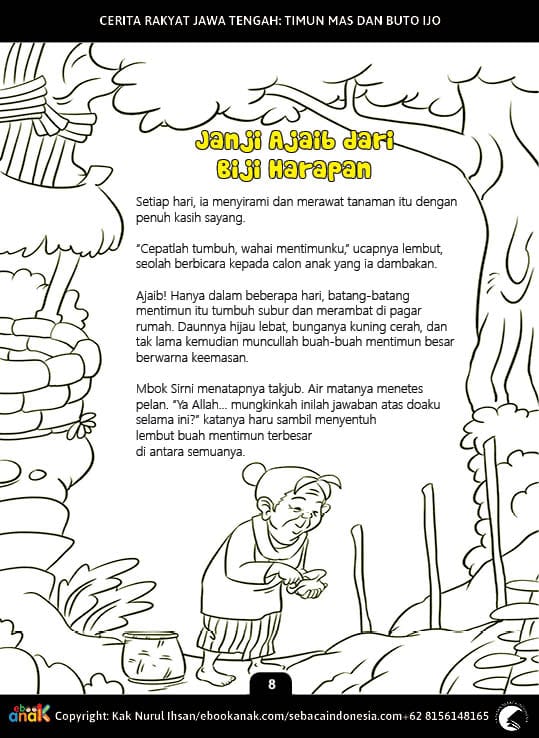 CERITA RAKYAT JAWA TENGAH: TIMUN MAS DAN BUTO IJO
Janji Ajaib dari
Biji Harapan
Setiap hari, ia menyirami dan merawat tanaman itu dengan
penuh kasih sayang.
"Cepatlah tumbuh, wahai mentimunku," ucapnya lembut,
seolah berbicara kepada calon anak yang ia dambakan.
Ajaib! Hanya dalam beberapa hari, batang-batang
mentimun itu tumbuh subur dan merambat di pagar
rumah. Daunnya hijau lebat, bunganya kuning cerah, dan
tak lama kemudian muncullah buah-buah mentimun besar
berwarna keemasan.
Mbok Sirni menatapnya takjub. Air matanya menetes
pelan. "Ya Allah... mungkinkah inilah jawaban atas doaku
selama ini?" katanya haru sambil menyentuh
lembut buah mentimun terbesar
di antara semuanya.
8
ebook
anak
Copyright: Kak Nurul Ihsan/ebookanak.com/sebacaindonesia.com+62 8156148165